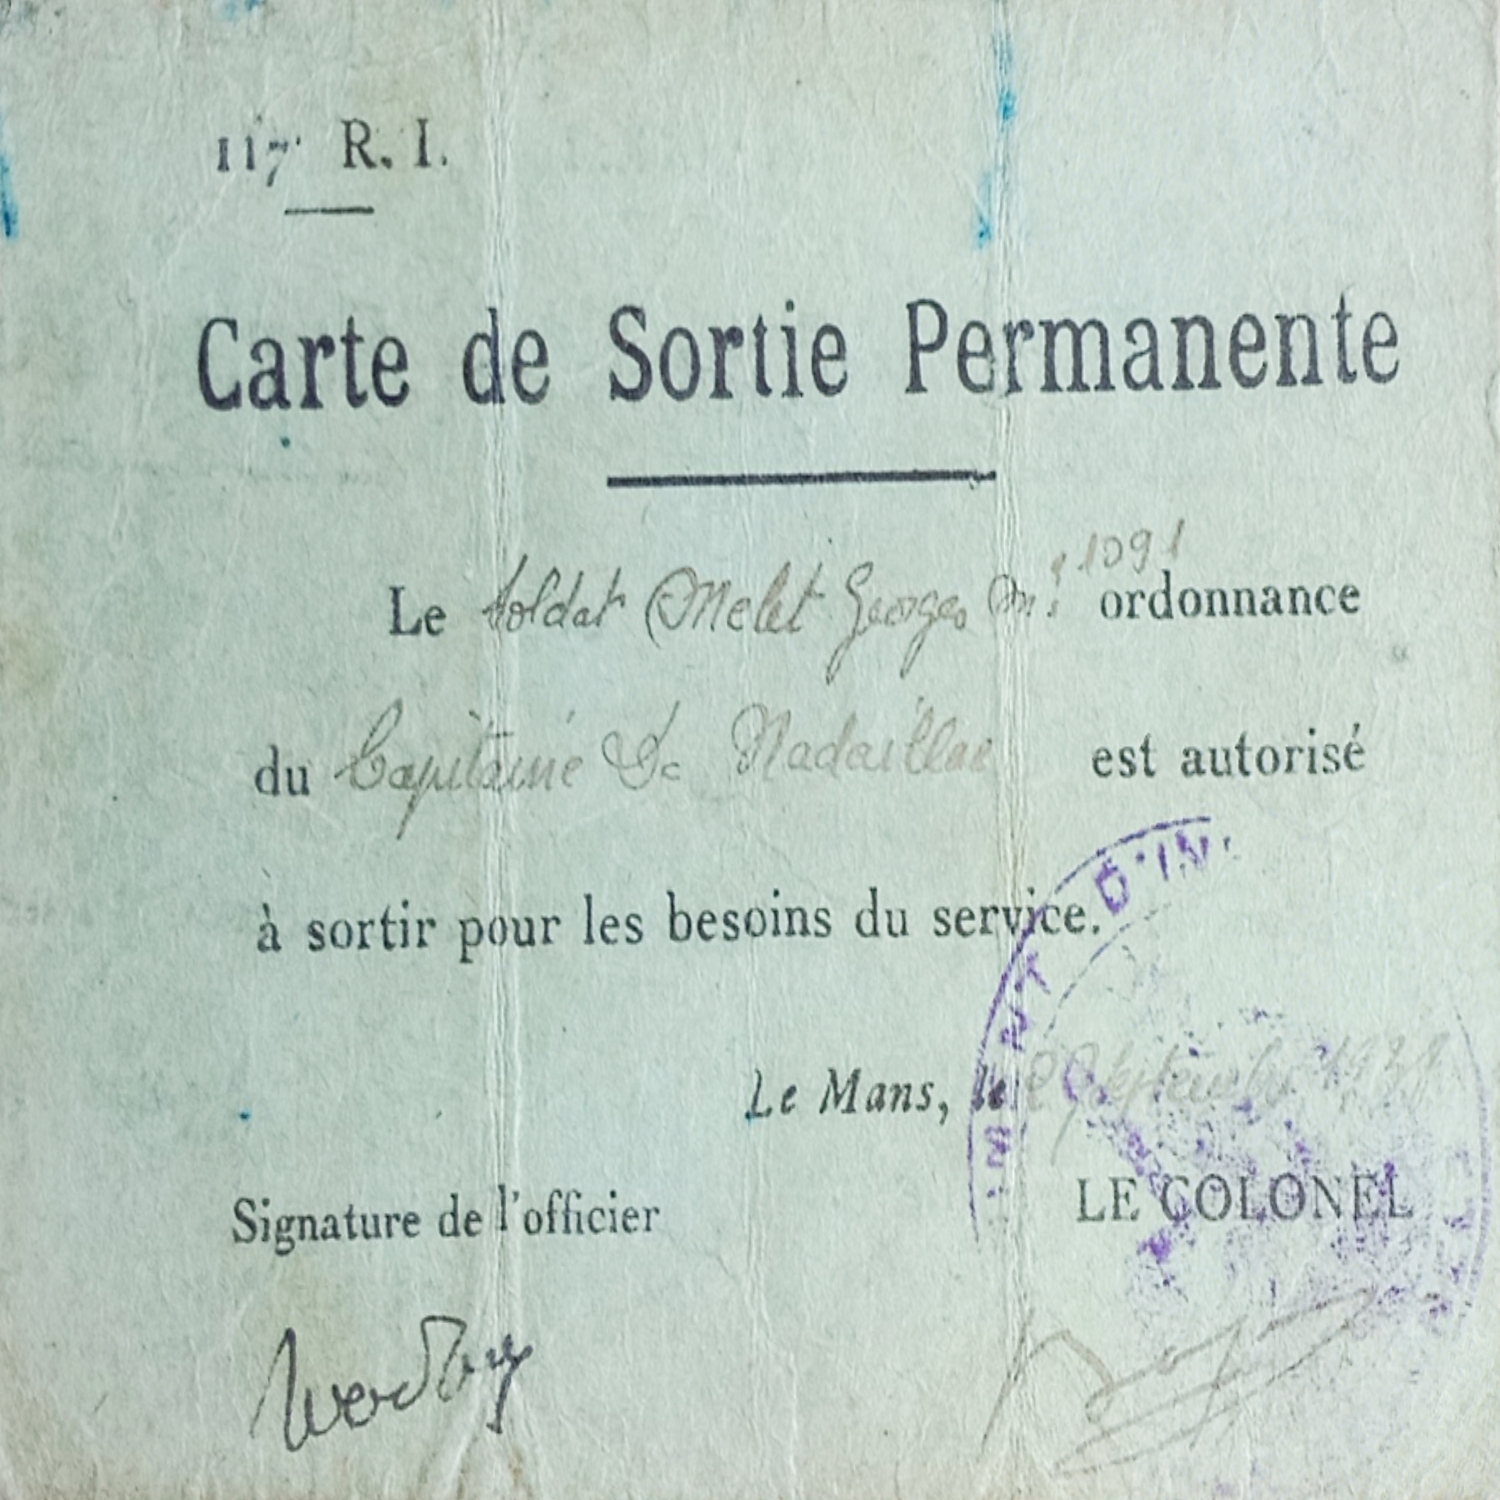 117e R. I.
Carte de Sortie Permanente
Le soldat Melet Georges Mle 1091 ordonnance
du Capitaine De Nadaillac est autorisé
à sortir pour les besoins du service.
Le Mans, le Septembre
Signature de l'officier LE COLONEL
D'IN